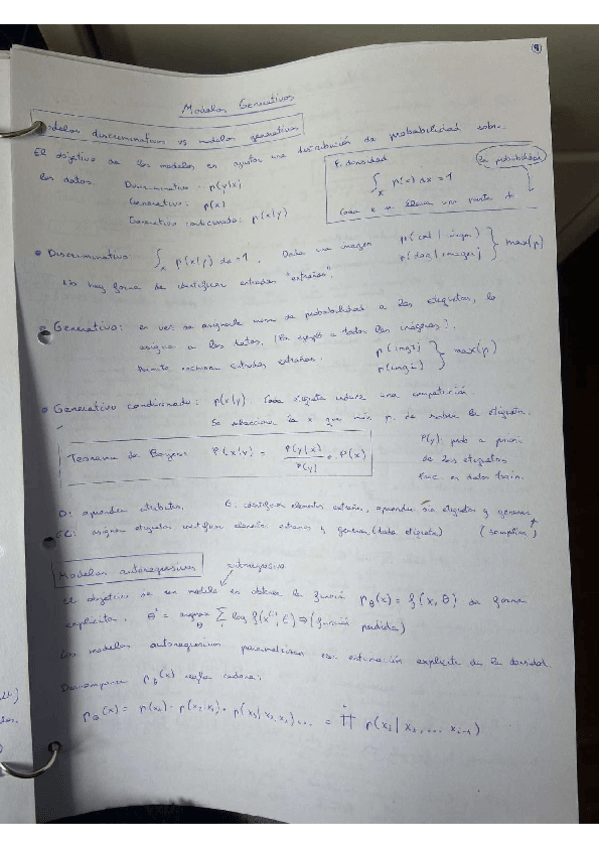 Modelos Generativos
Modelos discriminativos vs modelos generativos
El objetivo de los modelos es ajustar una distribución de probabilidad sobre
los datos.
Discriminativo: p(y|x)
Generativo: p(x)
Generativo condicionado: p(x|y)
F. densidad
∫x p(x) dx = 1
Cada x se lleva una parte de
la probabilidad
• Discriminativo: ∫x p(x|y) dx = 1. Dada una imagen p(cat | image)
p(dog | image) } max(p)
No hay forma de identificar entradas "extrañas".
• Generativo: en vez de asignarle masa de probabilidad a las etiquetas, lo
asigna a los datos. (Por ejemplo a todas las imágenes).
Permite rechazar entradas extrañas. p(img1)
p(img2) } max(p)
• Generativo condicionado: p(x|y) Cada etiqueta induce una competición
Se selecciona la x que más p. de saber la etiqueta.
Teorema de Bayes: P(x|y) = P(y|x) / P(y) · P(x)
P(y): prob a priori
de las etiquetas
en datos train.
D: aprenden atributos. G: identifican elementos extraños, aprenden sin etiquetas y generan
GC: asignan etiquetas identifican elementos extraños y generan (dada etiqueta) (sampling)
Modelos autoregresivos
autoregresivo
El objetivo de un modelo es obtener la función pθ(x) = f(x, θ) de forma
explícita. θ* = argmax θ ∑ log f(xⁱ, θ) ⇒ (función pérdida)
Los modelos autoregresivos parametrizan una estimación explícita de la densidad.
Descomponer pθ(x) regla cadena:
pθ(x) = p(x1) · p(x2|x1) · p(x3|x2, x1) ... = ∏ p(xi | x1, ... xi-1)